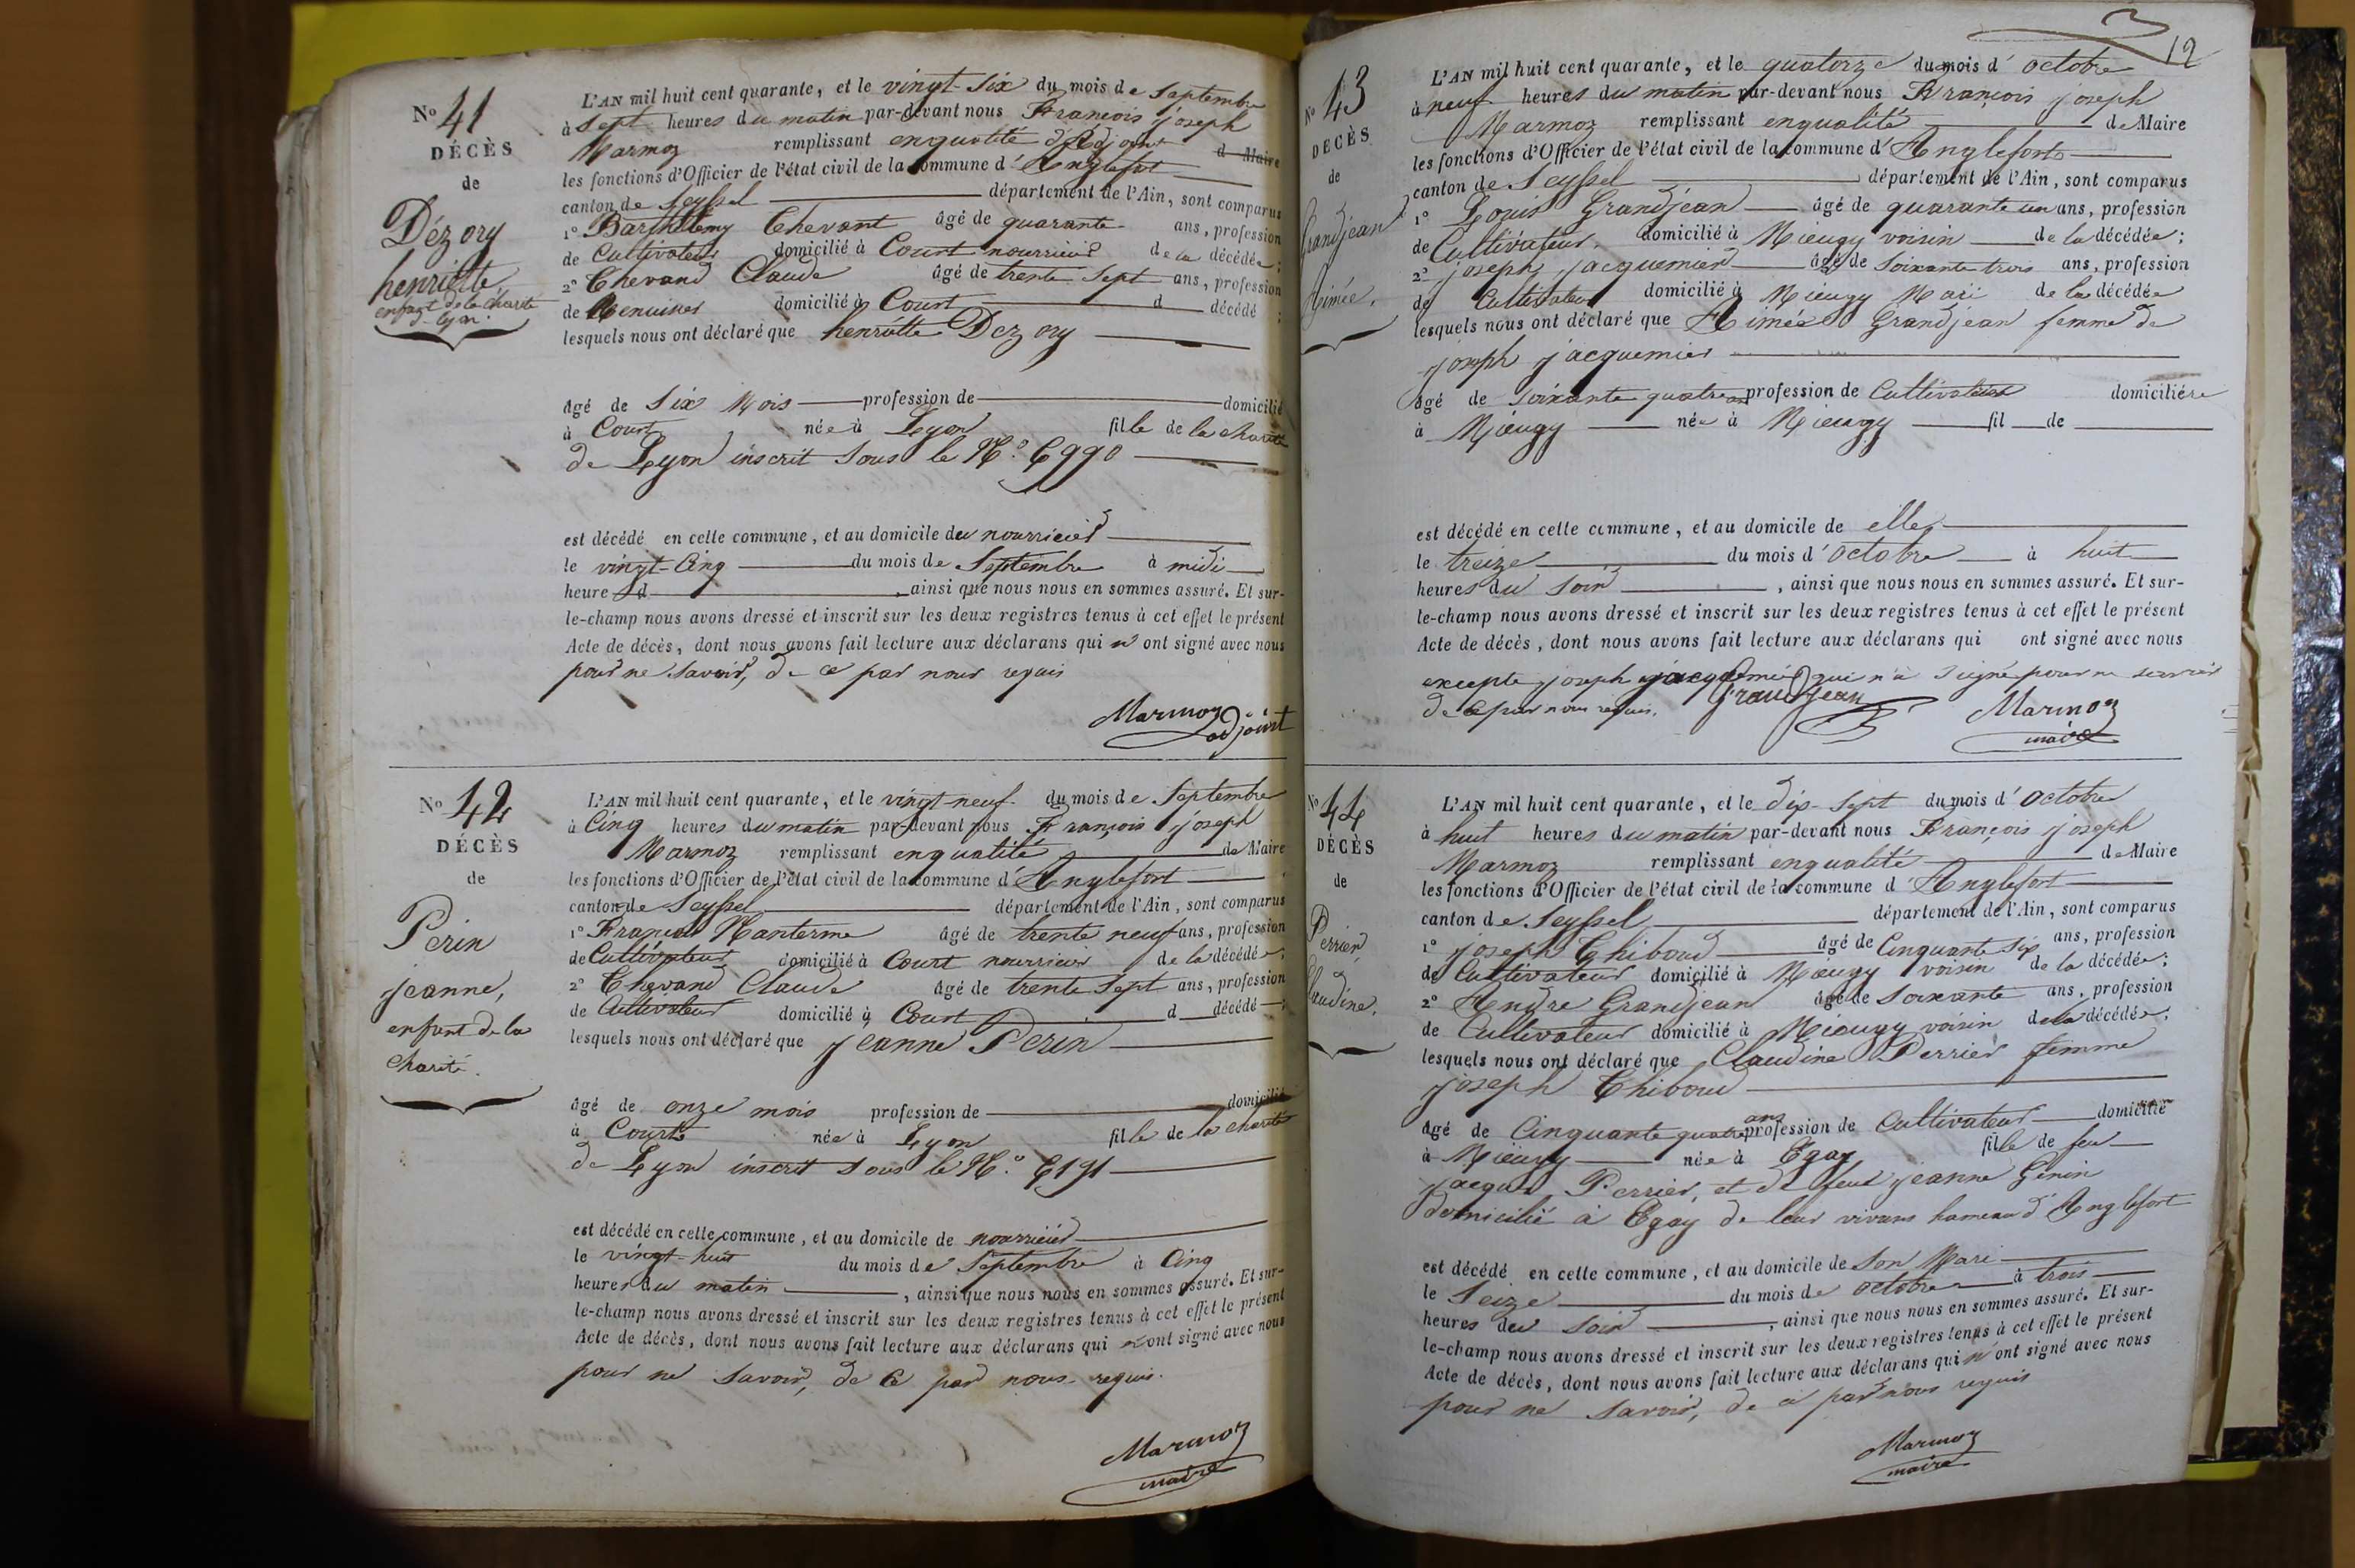 N.o 41
DÉCÈS
de
Dézory
henriette
enfant de la Charité
de Lyon.
L'AN mil huit cent quarante, et le vingt-six du mois de Septembre
à Sept heures du matin par-devant nous François joseph
Marmoz remplissant en qualité d'Adjoint d Maire
les fonctions d'Officier de l'état civil de la commune d'Anglefort
canton de Seyssel département de l'Ain, sont comparus
1o Barthélemy Chevant âgé de quarante ans, profession
de Cultivateur domicilié à Court nourricier de la décédée;
2o Chevand Claude âgé de trente Sept ans, profession
de Menuisier domicilié à Court d décédé ;
lesquels nous ont déclaré que henriette Dezory
âgé de Six Mois profession de domicilié
à Court née à Lyon fille de la charité
de Lyon inscrit sous le No. 6990
est décédé en cette commune, et au domicile du nourricier
le vingt-Cinq du mois de Septembre à midi
heure d , ainsi que nous nous en sommes assuré. Et sur-
le-champ nous avons dressé et inscrit sur les deux registres tenus à cet effet le présent
Acte de décès, dont nous avons fait lecture aux déclarans qui n'ont signé avec nous
pour ne savoir, de ce par nous requis
Marmoz
adjoint
No 42
DÉCÈS
de
Perin
jeanne,
enfant de la
charité.
L'AN mil huit cent quarante, et le vingt-neuf du mois de Septembre
à Cinq heures du matin par-devant nous François joseph
Marmoz remplissant en qualité de Maire
les fonctions d'Officier de l'état civil de la commune d'Anglefort
canton de Seyssel département de l'Ain, sont comparus
1o François Manterme âgé de trente neuf ans, profession
de Cultivateur domicilié à Court nourricier de la décédée;
2o Chevand Claude âgé de trente Sept ans, profession
de Cultivateur domicilié à Court d décédé ;
lesquels nous ont déclaré que jeanne Perin
âgé de onze mois profession de domicilié
à Court née à Lyon fille de la charité
de Lyon inscrit sous le No. 6191
est décédé en cette commune, et au domicile de nourricier
le vingt-huit du mois de Septembre à Cinq
heures du matin , ainsi que nous nous en sommes assuré. Et sur-
le-champ nous avons dressé et inscrit sur les deux registres tenus à cet effet le présent
Acte de décès, dont nous avons fait lecture aux déclarans qui n'ont signé avec nous
pour ne savoir, de ce par nous requis.
Marmoz
maire
12
No 43
DÉCÈS
de
Grandjean
Aimée.
L'AN mil huit cent quarante, et le quatorze du mois d'octobre
à neuf heures du matin par-devant nous François joseph
Marmoz remplissant en qualité de Maire
les fonctions d'Officier de l'état civil de la commune d'Anglefort
canton de Seyssel département de l'Ain, sont comparus
1o Louis Grandjean âgé de quarante un ans, profession
de Cultivateur, domicilié à Mieugy voisin de la décédée;
2o joseph jacquemier âgé de Soixante trois ans, profession
de Cultivateur domicilié à Mieugy Mari de la décédée
lesquels nous ont déclaré que Aimée Grandjean femme de
joseph jacquemier
âgé de Soixante quatre ans profession de Cultivateur domiciliée
à Mieugy née à Mieugy fil de
est décédé en cette commune, et au domicile de elle
le treize du mois d'octobre à huit
heures du Soir , ainsi que nous nous en sommes assuré. Et sur-
le-champ nous avons dressé et inscrit sur les deux registres tenus à cet effet le présent
Acte de décès, dont nous avons fait lecture aux déclarans qui ont signé avec nous
excepte joseph jacquemier qui n'a signé pour ne savoir
de ce par nous requis. Grandjean Marmoz
maire
No 44
DÉCÈS
de
Perrier
Claudine.
L'AN mil huit cent quarante, et le dix-Sept du mois d'octobre
à huit heures du matin par-devant nous François joseph
Marmoz remplissant en qualité de Maire
les fonctions d'Officier de l'état civil de la commune d'Anglefort
canton de Seyssel département de l'Ain, sont comparus
1o joseph Thiboud âgé de Cinquante Six ans, profession
de Cultivateur domicilié à Mieugy voisin de la décédée;
2o Andre Grandjean âgé de Soixante ans, profession
de Cultivateur domicilié à Mieugy voisin de la décédée;
lesquels nous ont déclaré que Claudine Perrier femme
joseph Thiboud
âgé de Cinquante quatre ans profession de Cultivateur domicilié
à Mieugy née à Egay fille de feu
jacques Perrier, et de feue jeanne Genin
domicilié à Egay de leur vivans hameau d'Anglefort
est décédé en cette commune, et au domicile de Son Mari
le Seize du mois de octobre à trois
heures du Soir , ainsi que nous nous en sommes assuré. Et sur-
le-champ nous avons dressé et inscrit sur les deux registres tenus à cet effet le présent
Acte de décès, dont nous avons fait lecture aux déclarans qui n'ont signé avec nous
pour ne savoir, de ce par nous requis
Marmoz
maire